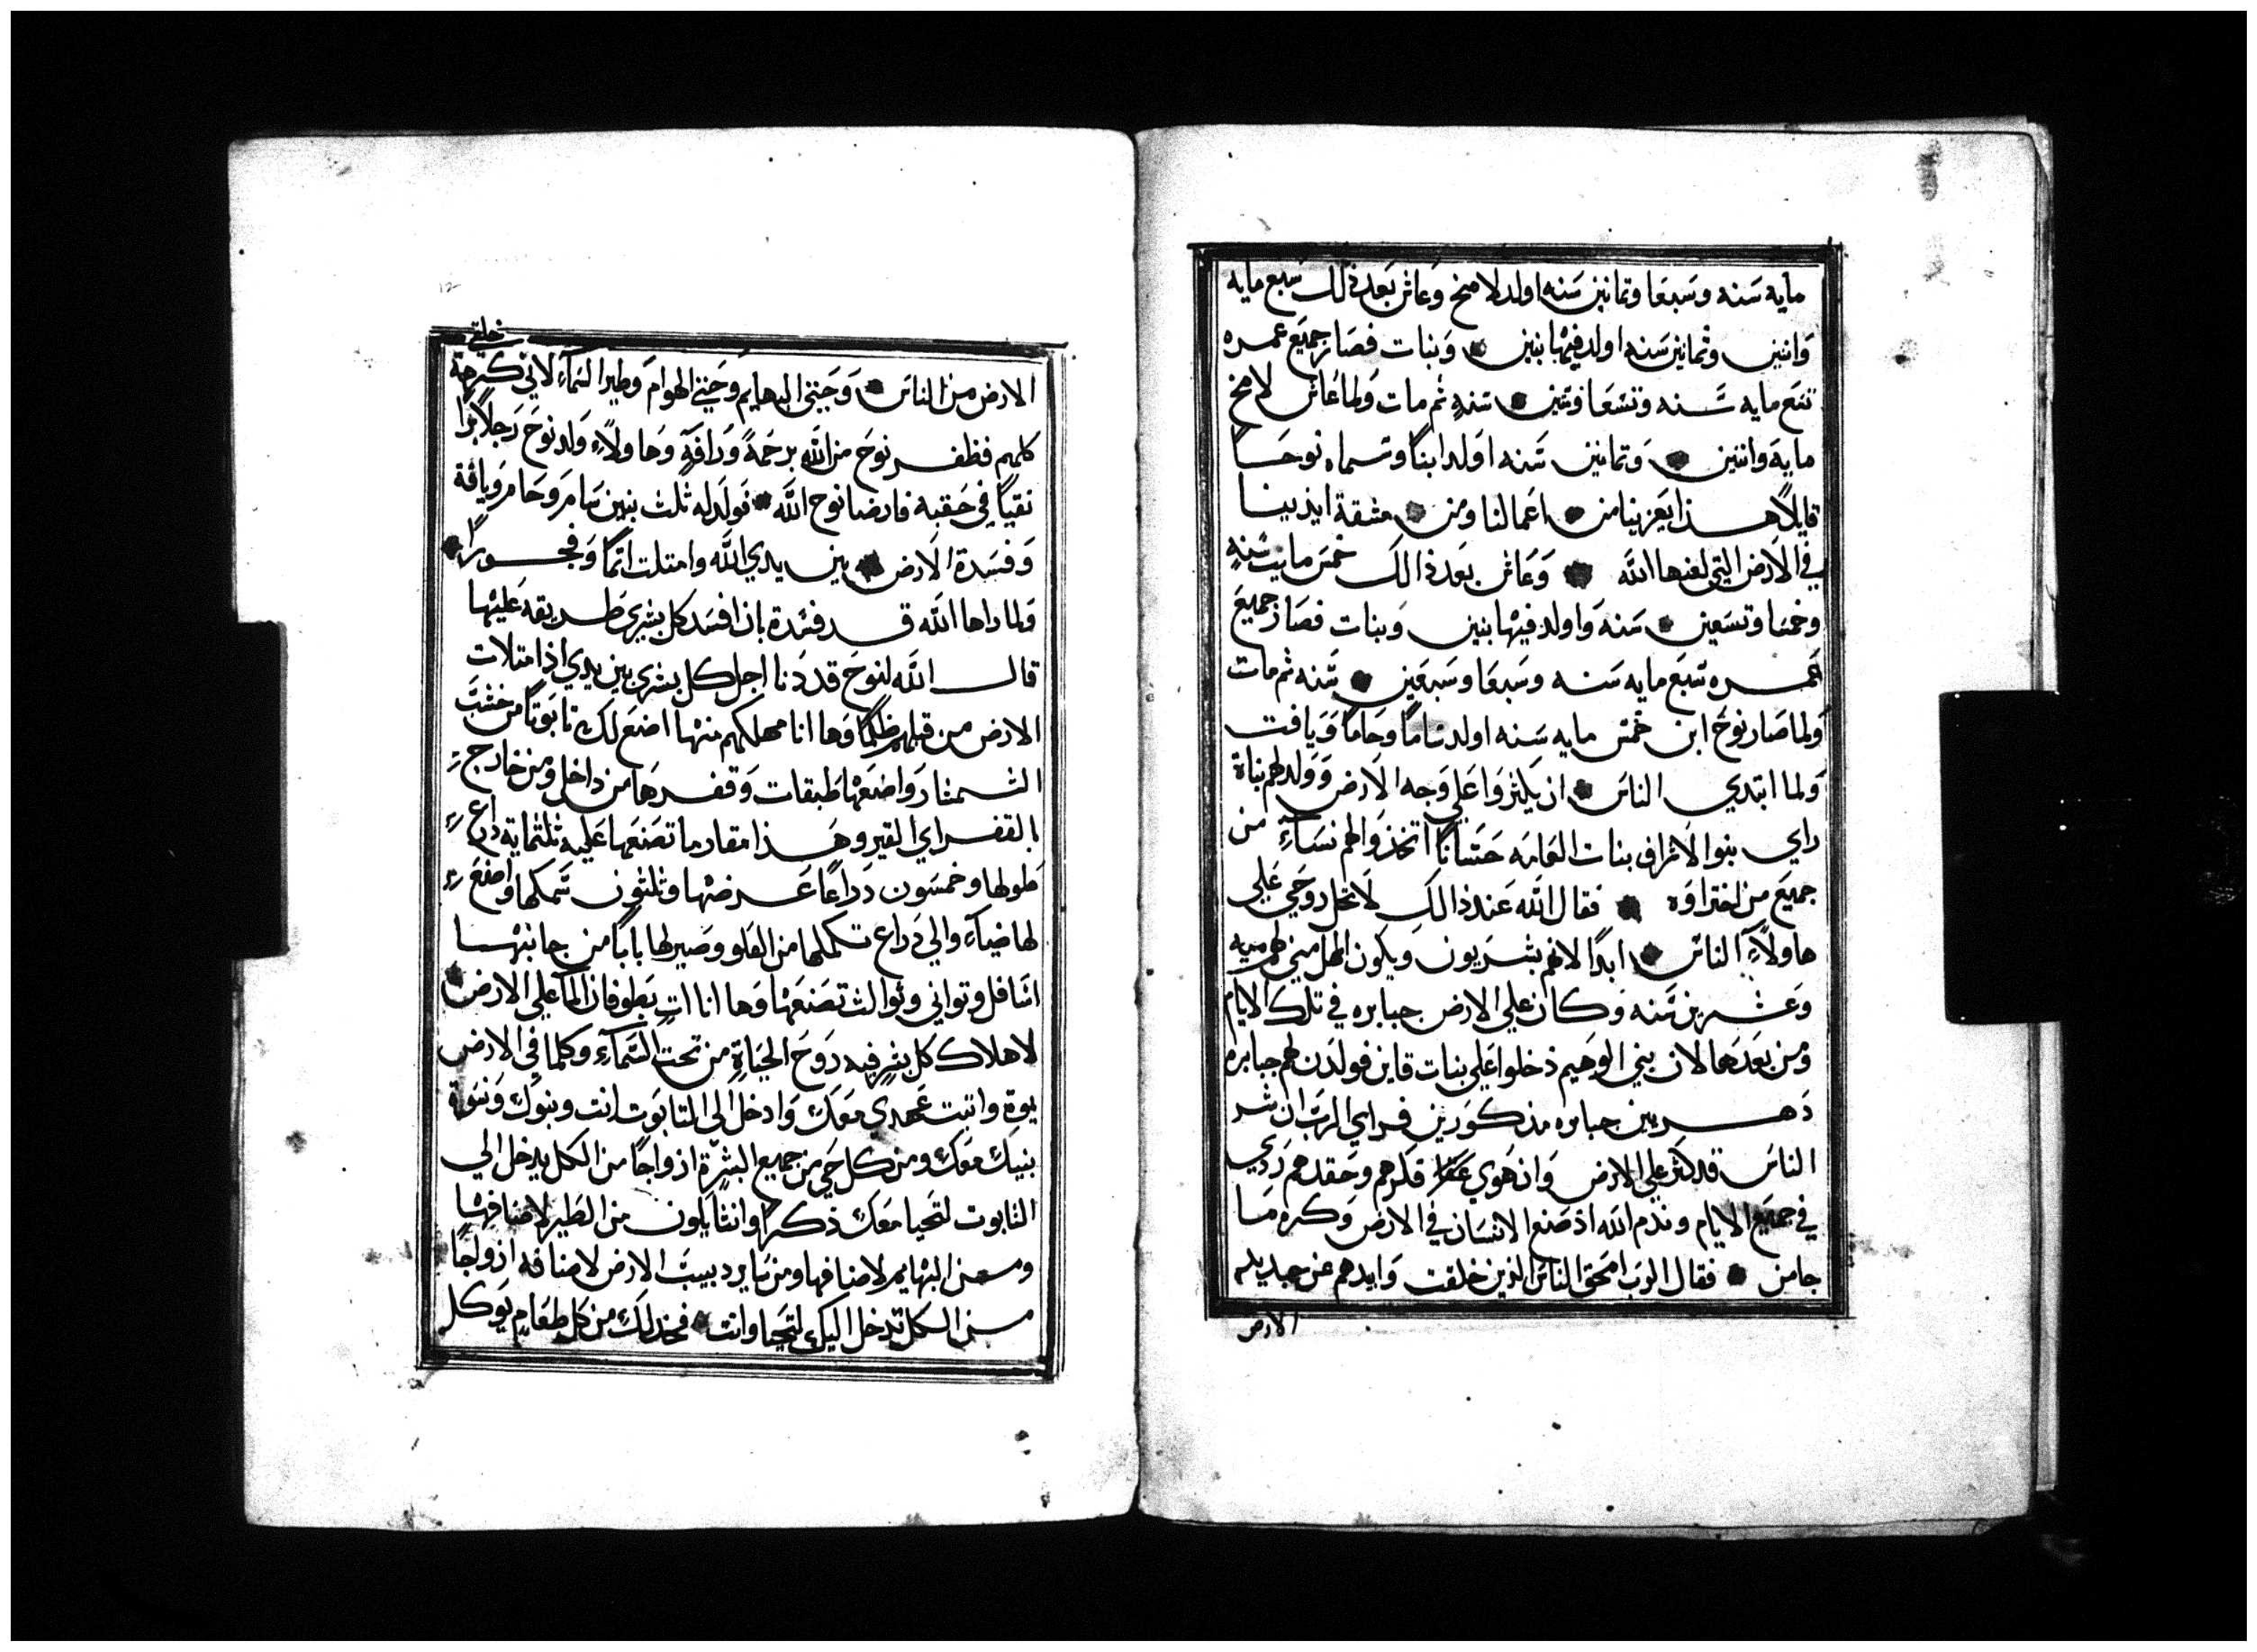 مايه سَنه وسَبعَا وثمانين سَنه اولد لامخ وَعاش بَعد ذالك سَبع مايه
وَاثنين وثمانين سَنه اولد فيها بنين وَبنات فصَار جميَع عمره
تسَع مايه سَنه وتسَعَا وستين سَنه ثم مات وَلما عَاش لامخ
مايَة واثنين وَثمانين سَنه اوَلد ابنًا وسَماه نوحَا
قايلًا هذا يَعزينا من اعَمالنا ومن مشقة ايدينا
في الاَرض التي لعنها الله وَعَاش بعَد ذالك خمسَ مايت سَنه
وخمسَا وتسَعين سَنه وَاولد فيها بنين وَبنات فصَار جميَع
عَمره سَبَع مايه سَنه وسَبعَا وسَبعَين سَنه ثم مات
وَلما صَار نوحَ ابن خمسَ مايه سَنه اولد سَامًا وحَامًا وَيافت
وَلما ابتدي الناسَ ان يكثروَا عَلي وَجه الاَرض وَولد لهم بناة
راي بنوا الاشراف بنات العَامَه حَسَانًا اتخذوَا لهم نسَآء من
جميَع من اختراوَه فقال الله عَند ذالك لاَ تحل روحَي عَلي
هاولاَء الناسَ ابدًا لانهم بشَريون ويكون المهل مني لهم ميه
وَعَشرين سَنه وَكان علي الارض جبابره في تلك الايام
ومن بعَدهَا لان بني الوَهيم دخلوا عَلي بنات قاين فولدن لهم جبابره
دَهريين جبابره مذكورَين فراي الربَ ان شر
الناسَ قد كثر علي الارض وَان هَوي فكرهم وحَقدهم رَدي
في جميَع الايام وندم الله اذ صَنع الانسَان في الارض وَكره مَا
جا من فقال الربَ امحَق الناسَ الذين خلقت وَابدهم عن جديد
الارض
خلقي
الارض من الناسَ وَحَيتي البهايَم وحَيتي الهوامَ وَطير السَمآء لاني كرهة
كلهم فظفر نوحَ من الله برحَمةً وَرَافة وَهَاولآء ولد نوحَ رَجلًا برًا
نقيًا في حَقبه فارضا نوح الله فوَلد له ثلث بنين سَامَر وحَامَر وَيافة
وَفسَدة الاَرض بين يدي الله وامتلت اثمًا وَفجورًا
وَلما راها الله قد فسَدة بان افسَد كل بشري طريقه عَليها
قال الله لنوحَ قد دَنا اجل كل بشري بين يدي اذ امتلات
الارض من قبلهم ظلمًا وَها انا مهلكهم منها اصنع لك تابوَتًا من خشبَ
الشمشار وَاصنعَها طَبقات وَقفرهَا من داخل ومن خارج
بالقفر اي القير وهَذا مقادر ما تصَنعَها عَليه ثلثماية ذراع
طولها وخمسَون ذراعًا عَرضها وثلثون سَمكها واصنعَ
لها ضيآء والي ذراع تكملها من العَلو وصَير لها بابًا من جانبها
اسَافل وثواني وثوالث تصَنعَها وَها انا ات بطوفان المآ علي الارض
لاهلاك كل بشر فيه رَوحَ الحَيَاة من تحت السَمآء وكلما في الارض
يموة واثبت عَهدي معَك وَادخل الي التابوَت انت وبنوك وَنسوة
بنيك معَك ومن كل حَي من جميع البشرة ازواجًا من الكل يدخل الي
التابوت لتحيا معَك ذكرا وانثا يكون من الطير لاصنافها
ومن البهايم لاصنافها ومن سَاير دبيبَ الارض لاصنافه ازواجًا
من الكل تدخل اليك لتَحيا وانت فخذ لك من كل طعَام يوَكل